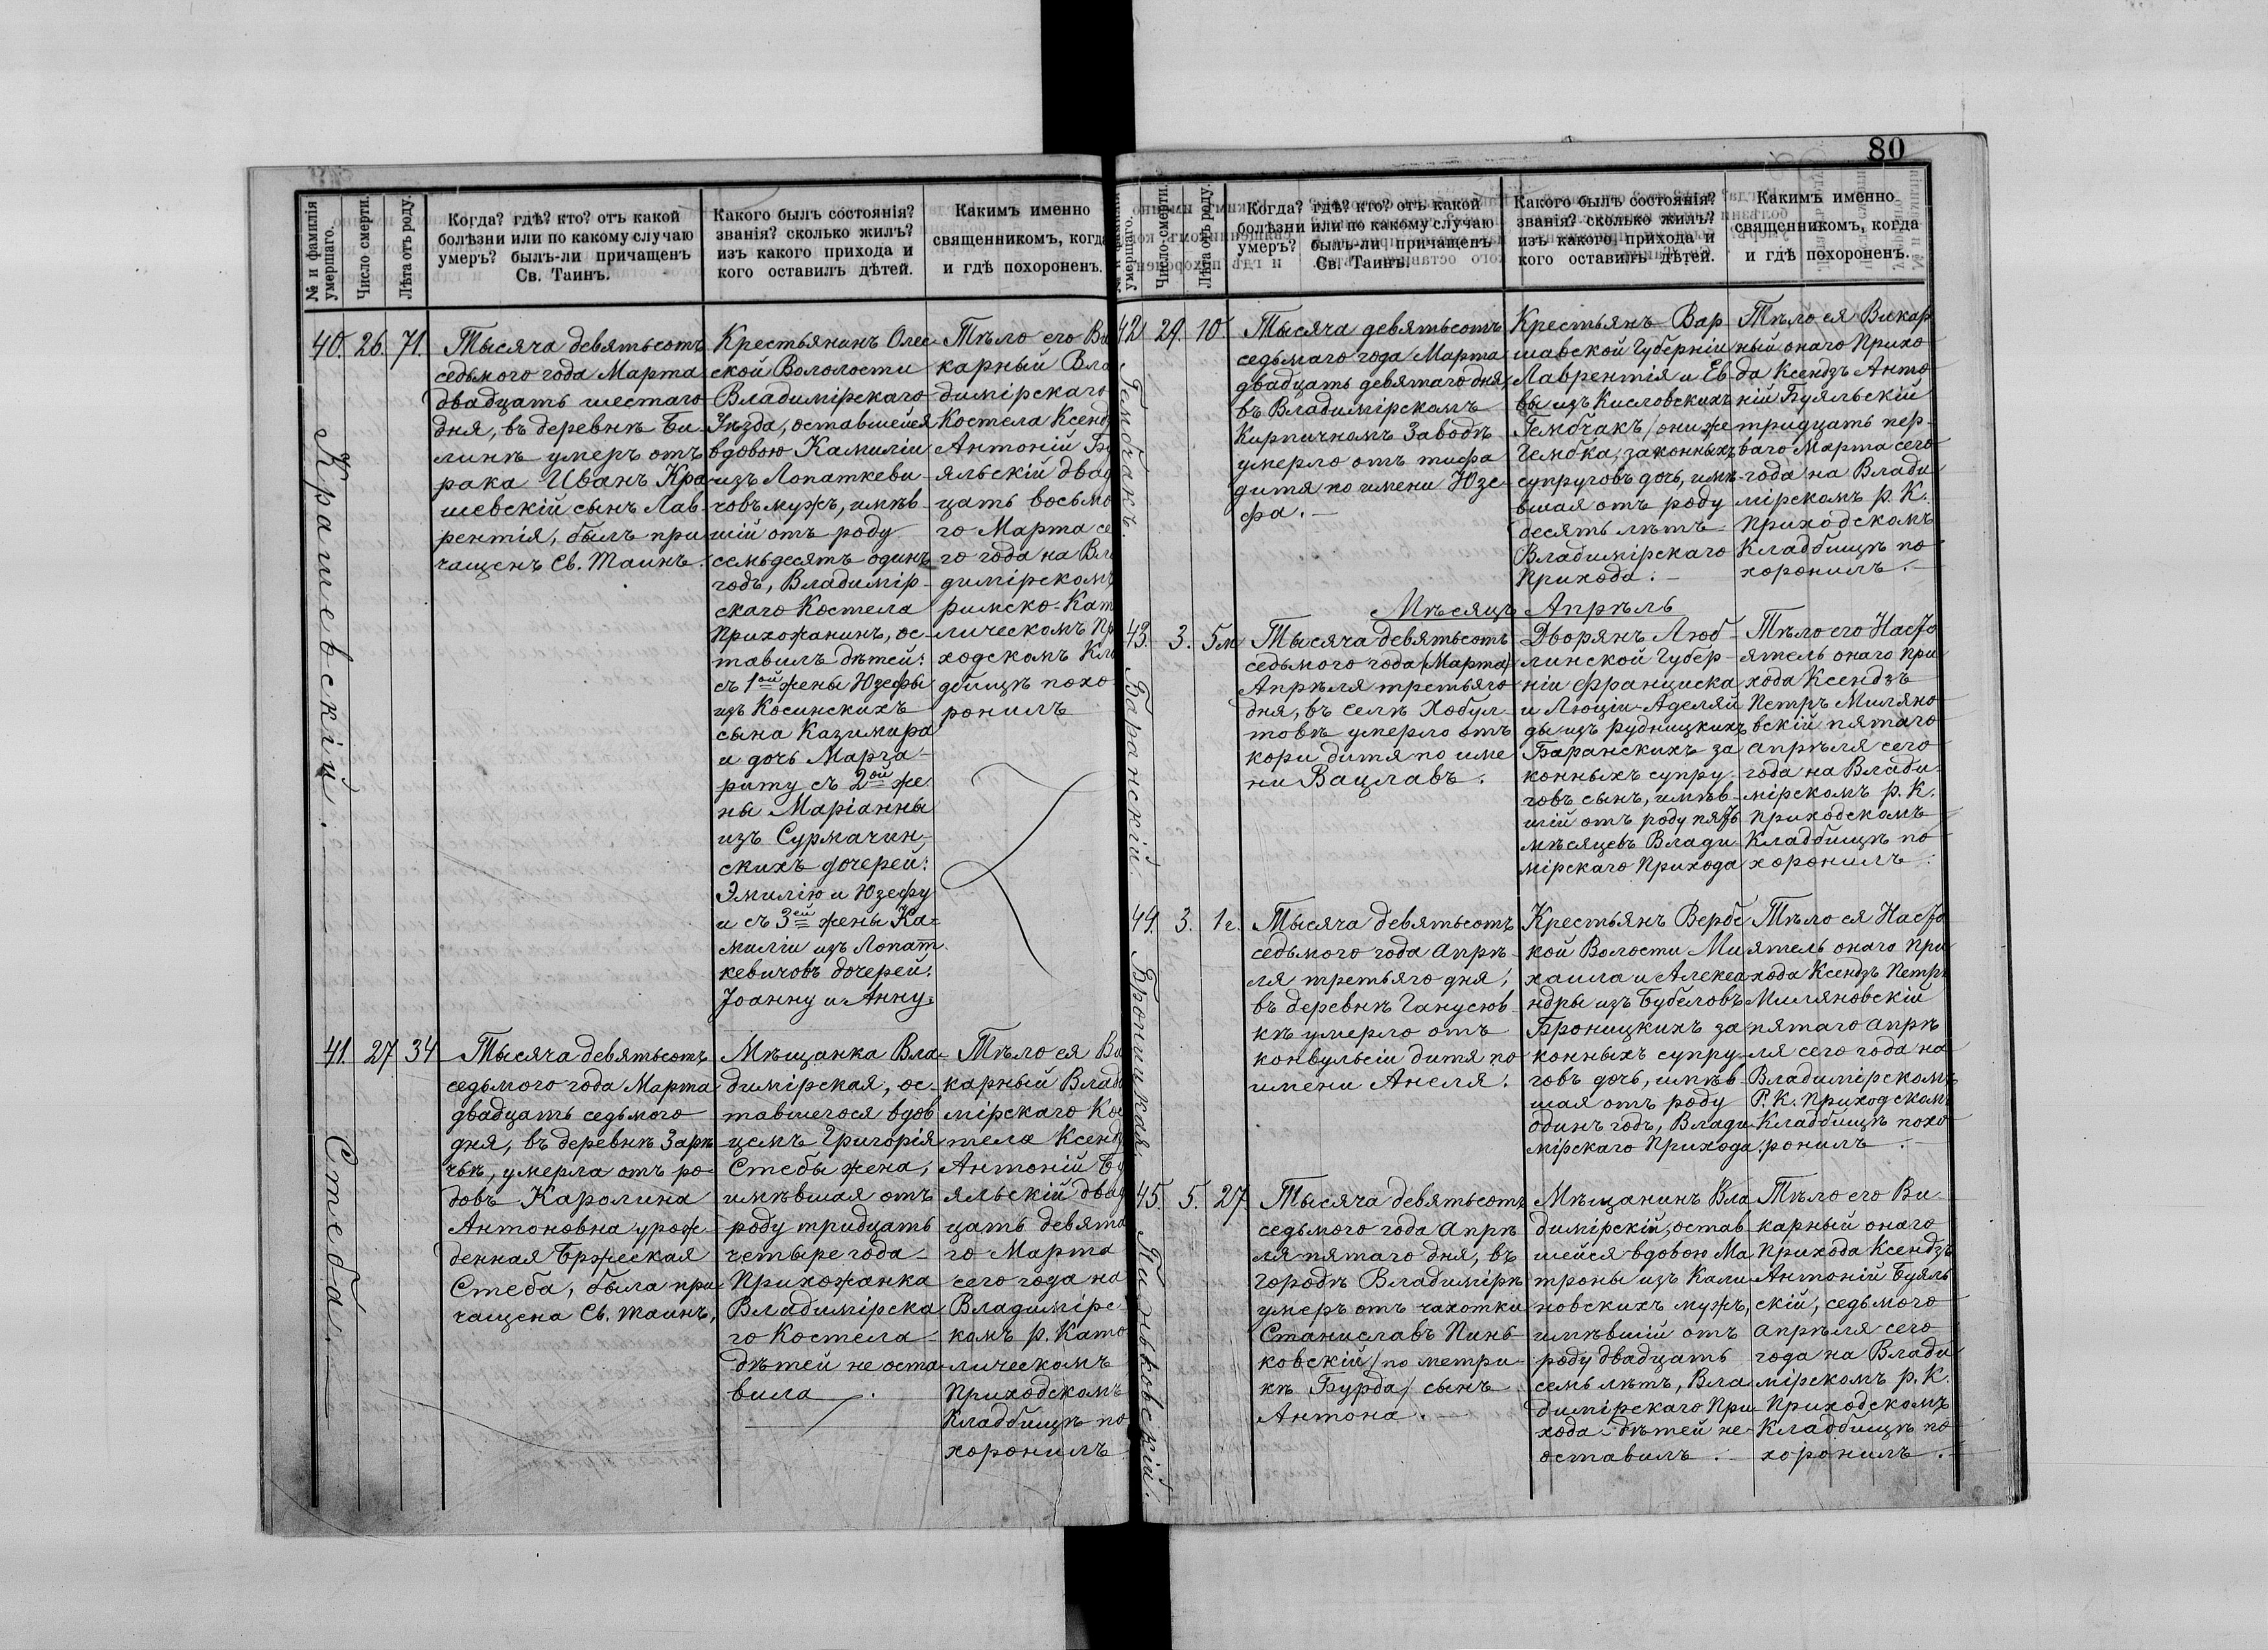 80
№ и фамилія умершаго.
Число смерти.
Лѣта отъ роду.
Когда? гдѣ? кто? отъ какой
болѣзни или по какому случаю
умеръ? былъ-ли причащенъ
Св. Таинъ.
Какого былъ состоянія?
званія? сколько жилъ?
изъ какого прихода и
кого оставилъ дѣтей.
Какимъ именно
священникомъ, когда
и гдѣ похороненъ.
40. 26. 71.
Крашевскій.
Тысяча девятьсотъ
седьмого года Марта
двадцать шестаго
дня, въ деревнѣ Би-
линѣ умеръ отъ
рака Иванъ Кра-
шевскій сынъ Лав-
рентія, былъ при
чащенъ Св. Таинъ.
Крестьянинъ Олес-
ской Вололости
Владимірскаго
Уѣзда, оставшейся
вдовою Камиліи
изъ Лопаткеви-
човъ мужъ, имѣв-
шій отъ роду
семьдесятъ одинъ
годъ, Владимір-
скаго Костела
Прихожанинъ, ос-
тавилъ дѣтей:
съ 1ой жены Юзефы
изъ Косинскихъ
сына Казимира
и дочь Марга-
риту съ 2ой же
ны Маріанны
изъ Сурмачин-
скихъ дочерей:
Эмилію и Юзефу
и съ 3ей жены Ка-
миліи изъ Лопат-
кевичовъ дочерей:
Іоанну и Анну.
Тѣло его Ви
карный Вла
димірскаго
Костела Ксендз
Антоній Бу
яльскій двад
цать восьмо
го Марта се
го года на Вла
димірскомъ
римско-Кат
лическомъ Пр
ходскомъ Кла
дбищѣ похо
ронилъ
41. 27. 34
Стеба.
Тысяча девятьсотъ
седьмого года Марта
двадцать седьмого
дня, въ деревнѣ Зарѣ
чьѣ, умерла отъ ро-
довъ Каролина
Антоновна урож-
денная Бржеская
Стеба, была при
чащена Св. Таинъ,
Мѣщанка Вла-
димірская, ос-
тавшегося вдов
цемъ Григорія
Стебы жена,
имѣвшая отъ
роду тридцать
четыре года
Прихожанка
Владимірска
го Костела
дѣтей не оста-
вила.
Тѣло ея Ви
карный Влади
мірскаго Кос
тела Ксендз
Антоній Бу
яльскій двад
цать девято
го Марта
сего года на
Владимірс-
комъ р. Като
лическомъ
Приходскомъ
Кладбищѣ по
хоронилъ
№ и фамилія умершаго.
Число смерти.
Лѣта отъ роду.
Когда? гдѣ? кто? отъ какой
болѣзни или по какому случаю
умеръ? былъ-ли причащенъ
Св. Таинъ.
Какого былъ состоянія?
званія? сколько жилъ?
изъ какого прихода и
кого оставилъ дѣтей.
Какимъ именно
священникомъ, когда
и гдѣ похороненъ.
42 29. 10.
Гембчакъ.
Тысяча девятьсотъ
седьмаго года Марта
двадцать девятаго дня,
въ Владимірскомъ
Кирпичномъ Заводѣ
умерло отъ тифа
дитя по имени Юзе-
фа.
Крестьянъ Вар-
шавской Губерніи
Лаврентія и Ев-
вы изъ Кисловскихъ
Гембчакъ /они же
Гембка, законныхъ
супруговъ дочь, имѣ-
вшая отъ роду
десять лѣтъ
Владимірскаго
Прихода.
Тѣло ея Викар
ный онаго Прихо
да Ксендзъ Анто
ній Буяльскій
тридцать пер-
ваго Марта сего
года на Влади
мірскомъ р. К.
Приходскомъ
Кладбищѣ по
хоронилъ.
Мѣсяцъ Апрѣль
43. 3. 5м
Баранскій.
Тысяча девятьсотъ
седьмого года (Марта)
Апрѣля третьяго
дня, въ селѣ Хобул-
товѣ умерло отъ
кори дитя по име
ни Вацлавъ.
Дворянъ Люб-
линской Губер-
ніи Франциска
и Люціи-Аделяй
ды изъ рудницкихъ
Баранскихъ за
конныхъ супру-
говъ сынъ, имѣв-
шій отъ роду пять
мѣсяцевъ Влади
мірскаго Прихода
Тѣло его Насто
ятель онаго При
хода Ксендзъ
Петръ Миляно
вскій пятаго
Апрѣля сего
года на Влади-
мірскомъ р. К.
Приходскомъ
Кладбищѣ по
хоронилъ.
44. 3. 1г.
Броницкая.
Тысяча девятьсотъ
седьмого года Апрѣ-
ля третьяго дня,
въ деревнѣ Ганусюв-
кѣ умерло отъ
конвульсіи дитя по
имени Анеля.
Крестьянъ Вербс
кой Волости Ми
хаила и Алекса
ндры изъ Бубеловъ
Броницкихъ за
конныхъ супру-
говъ дочь, имѣв-
шая отъ роду
одинъ годъ, Влади
мірскаго Прихода.
Тѣло ея Насто
ятель онаго При
хода Ксендзъ Петръ
Миляновскій
пятаго Апрѣ
ля сего года на
Владимірскомъ
Р. К. Приходскомъ
Кладбищѣ похо
ронилъ.
45. 5. 27
Пиньковскій.
Тысяча девятьсотъ
седьмого года Апрѣ
ля пятаго дня, въ
городѣ Владимірѣ
умеръ отъ чахотки
Станиславъ Пинь-
ковскій /по метри-
кѣ Бурда/ сынъ
Антона.
Мѣщанинъ Вла
димірскій, остав
шейся вдовою Ма
троны изъ Кали
новскихъ мужъ,
имѣвшій отъ
роду двадцать
семь лѣтъ, Вла
димірскаго При
хода дѣтей не
оставилъ.
Тѣло его Ви-
карный онаго
Прихода Ксендзъ
Антоній Буяль
скій, седьмого
Апрѣля сего
года на Влади
мірскомъ р. К.
Приходскомъ
Кладбищѣ по
хоронилъ.